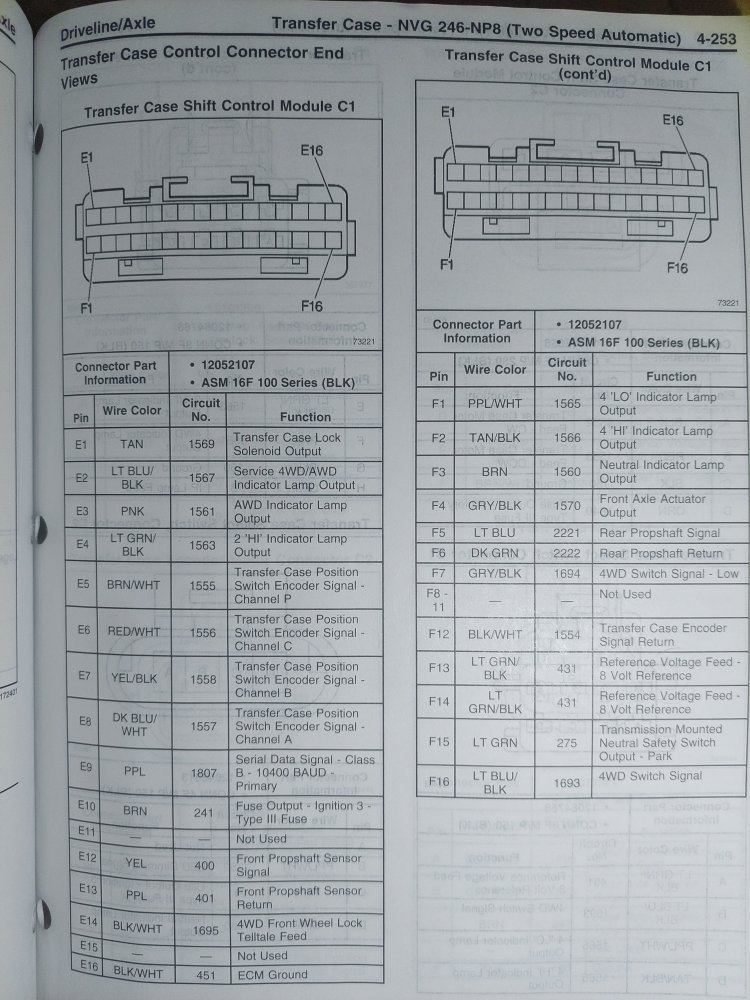 Driveline/Axle
Transfer Case - NVG 246-NP8 (Two Speed Automatic) 4-253
Transfer Case Control Connector End
Views
Transfer Case Shift Control Module C1
E1
E16
F1
F16
73221
Connector Part
Information
• 12052107
• ASM 16F 100 Series (BLK)
Pin Wire Color Circuit No. Function
E1 TAN 1569 Transfer Case Lock
Solenoid Output
E2 LT BLU/
BLK 1567 Service 4WD/AWD
Indicator Lamp Output
E3 PNK 1561 AWD Indicator Lamp
Output
E4 LT GRN/
BLK 1563 2 'HI' Indicator Lamp
Output
E5 BRN/WHT 1555 Transfer Case Position
Switch Encoder Signal -
Channel P
E6 RED/WHT 1556 Transfer Case Position
Switch Encoder Signal -
Channel C
E7 YEL/BLK 1558 Transfer Case Position
Switch Encoder Signal -
Channel B
E8 DK BLU/
WHT 1557 Transfer Case Position
Switch Encoder Signal -
Channel A
E9 PPL 1807 Serial Data Signal - Class
B - 10400 BAUD -
Primary
E10 BRN 241 Fuse Output - Ignition 3 -
Type III Fuse
E11 — — Not Used
E12 YEL 400 Front Propshaft Sensor
Signal
E13 PPL 401 Front Propshaft Sensor
Return
E14 BLK/WHT 1695 4WD Front Wheel Lock
Telltale Feed
E15 — — Not Used
E16 BLK/WHT 451 ECM Ground
Transfer Case Shift Control Module C1
(cont'd)
E1
E16
F1
F16
73221
Connector Part
Information
• 12052107
• ASM 16F 100 Series (BLK)
Pin Wire Color Circuit No. Function
F1 PPL/WHT 1565 4 'LO' Indicator Lamp
Output
F2 TAN/BLK 1566 4 'HI' Indicator Lamp
Output
F3 BRN 1560 Neutral Indicator Lamp
Output
F4 GRY/BLK 1570 Front Axle Actuator
Output
F5 LT BLU 2221 Rear Propshaft Signal
F6 DK GRN 2222 Rear Propshaft Return
F7 GRY/BLK 1694 4WD Switch Signal - Low
F8 -
11 — — Not Used
F12 BLK/WHT 1554 Transfer Case Encoder
Signal Return
F13 LT GRN/
BLK 431 Reference Voltage Feed -
8 Volt Reference
F14 LT
GRN/BLK 431 Reference Voltage Feed -
8 Volt Reference
F15 LT GRN 275 Transmission Mounted
Neutral Safety Switch
Output - Park
F16 LT BLU/
BLK 1693 4WD Switch Signal